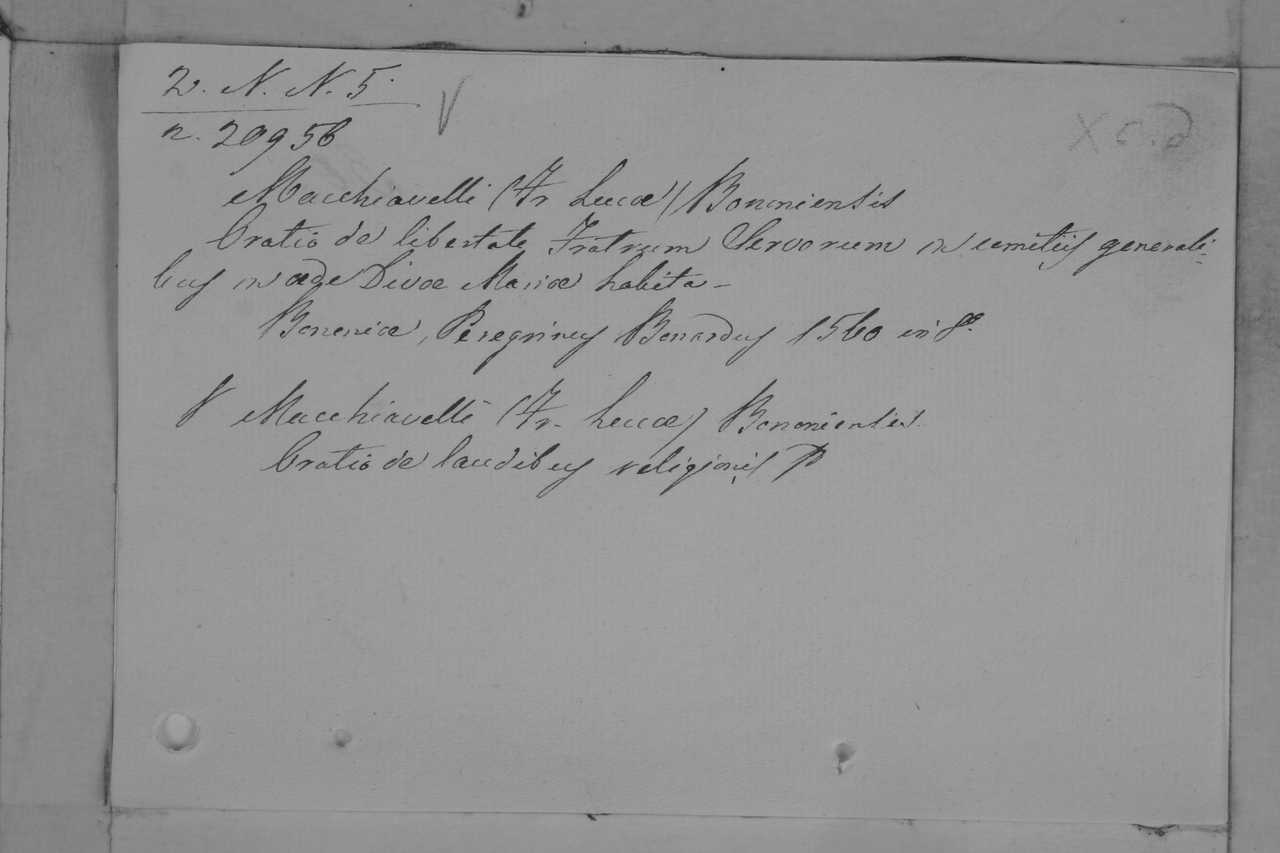 2. N. N. 5.
n. 20956
Macchiavelli (Fr Lucæ) Bononiensis
Oratio de libertate Fratrum Servorum in comitijs generali-
bus in æde Divæ Mariæ habita -
Bononiæ, Peregrinus Bonardus 1560 in 8º
V Macchiavelli (Fr. Lucæ) Bononiensis.
Oratio de laudibus religionis